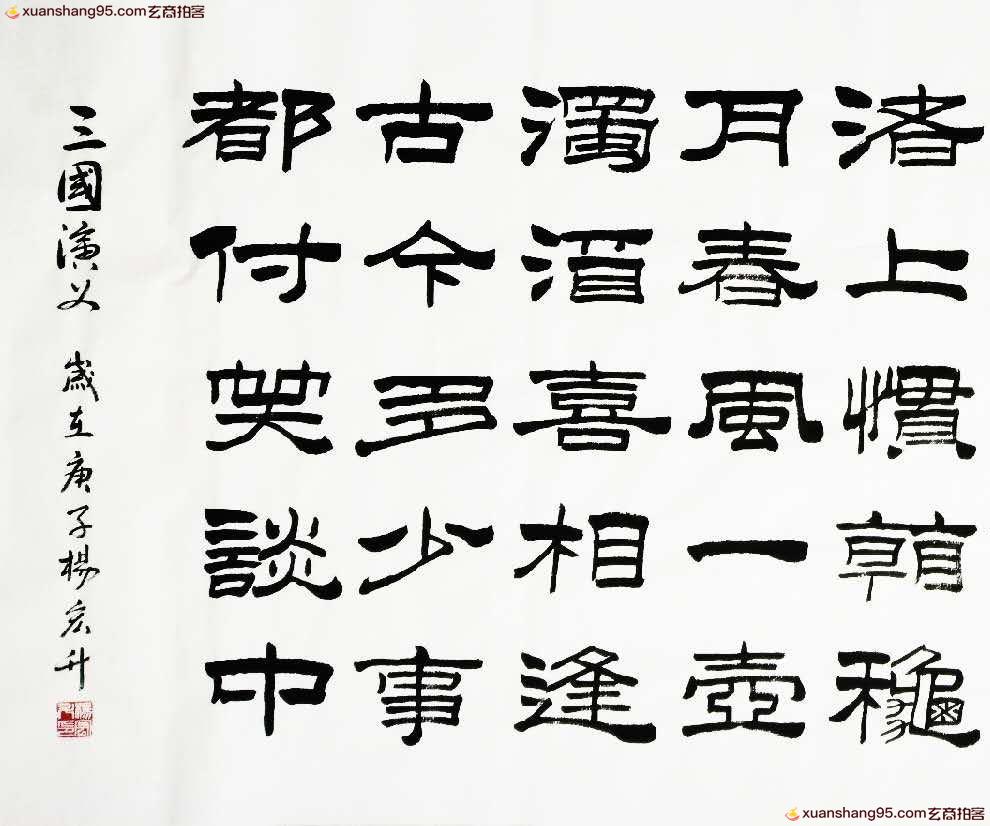 xuanshang95.com玄商拍客
渚上慣看龝
月春風一壺
濁酒喜相逢
古今多少事
都付笑談中
三國演义 歲在庚子楊宏升
xuanshang95.com玄商拍客